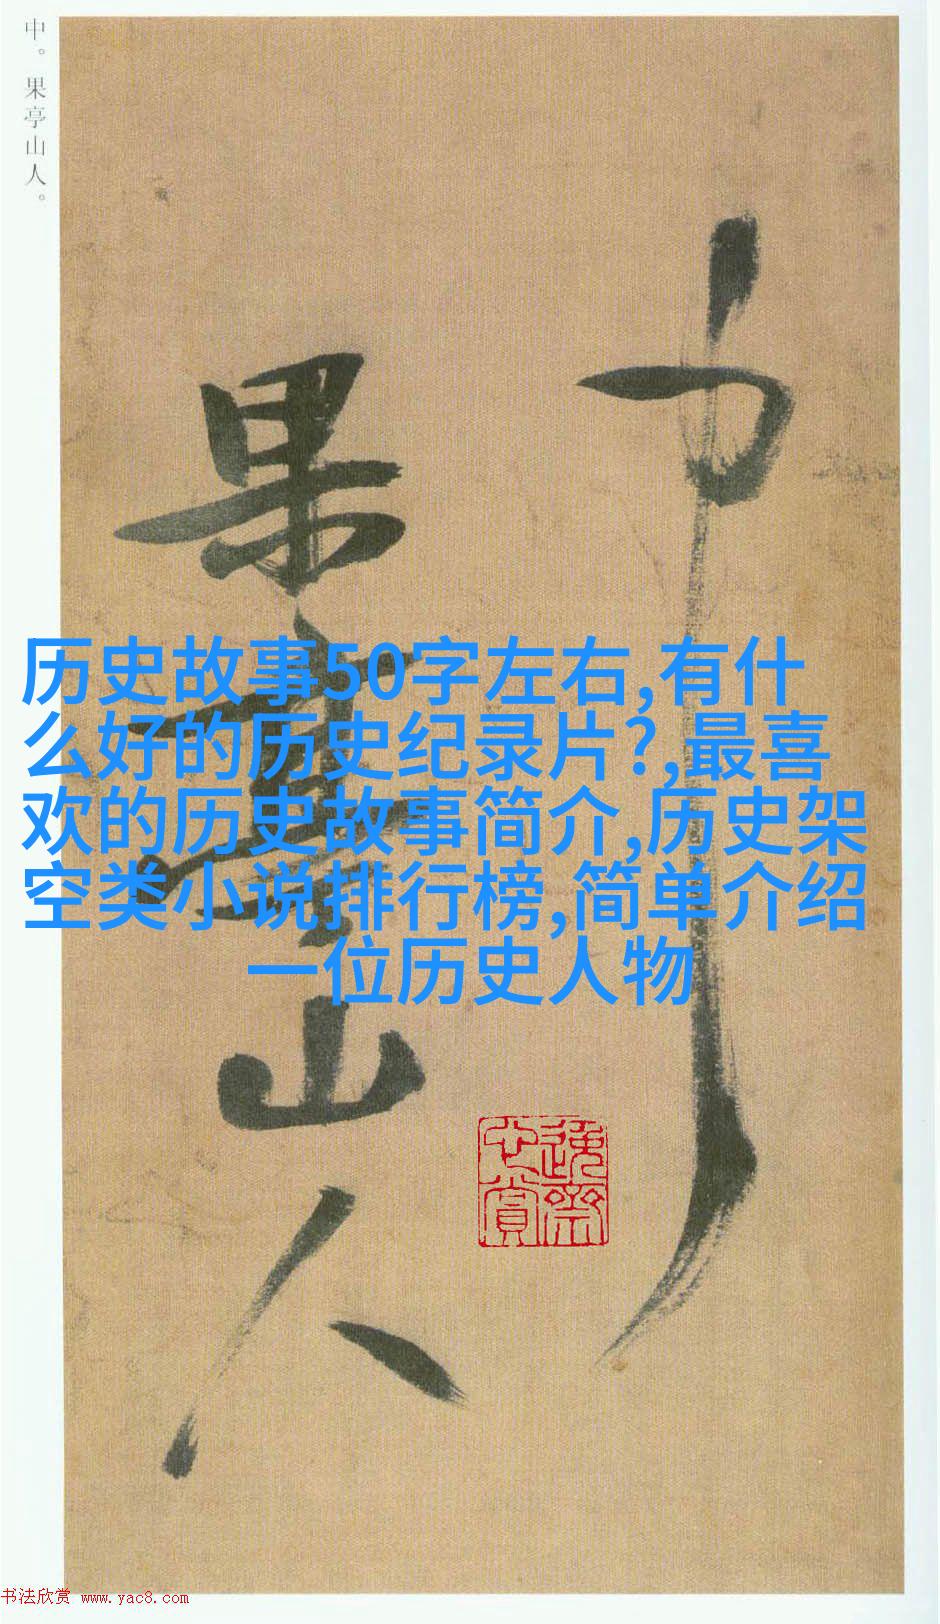 中。果亭山人。
中
果亭山人
历史故事50字左右,有什
么好的历史纪录片?,最喜
欢的历史故事简介,历史架
空类小说排行榜,简单介绍
一位历史人物
逸斋
心赏
书法欣赏 www.yac8.com